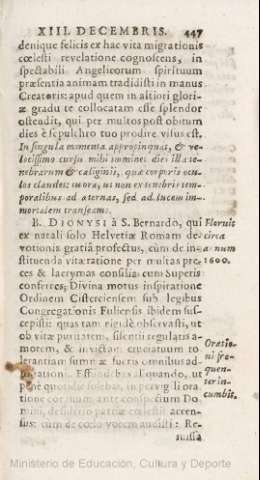 XIII. DECEMBRIS. 447
denique felicis ex hac vita migrationis
cœlesti revelatione cognoscens, in
spectabili Angelicorum spirituum
præsentia animam tradidisti in manus
Creatoris: apud quem in altiori glori-
æ gradu te collocatam esse splendor
ostendit, qui per multos post obitum
dies è sepulchro tuo prodire visus est.
In singula momenta appropinquat, & ve-
locissimo cursu mihi imminet dies illa te-
nebrarum & caliginis, quæ corporis ocu-
los claudet: morar, ut non ex tenebris tem-
poralibus ad æternas, sed ad lucem im-
mortalem transeam.
B. DIONYSI à S. Bernardo, qui
ex natali solo Helvetiæ Romam de-
votionis gratiâ profectus, cùm de in-
stituenda vitæ ratione per multas pre-
ces & lacrymas consilia cum Superis
conferres; Divina motus inspiratione
Ordinem Cisterciensem sub legibus
Congregationis Fuliensis ibidem sus-
cepisti: quas tam rigidè observasti, ut
ob vitæ puritatem, silentii regularis a-
morem, & invictam cruciatuum to-
lerantiam summæ fueris omnibus ad-
mirationi. Est aliquando, ut
penè quotidie solebas, in pervigili ora
tione cor tuum ante conspectum Do
mini, desiderio patriæ cœlestis accen-
sus: cum de cœlo vocem audisti: Re-
missa
Floruit
circa
annum
1600.
Oratio-
ni fre-
quen-
ter in-
cumbit.
Ministerio de Educación, Cultura y Deporte